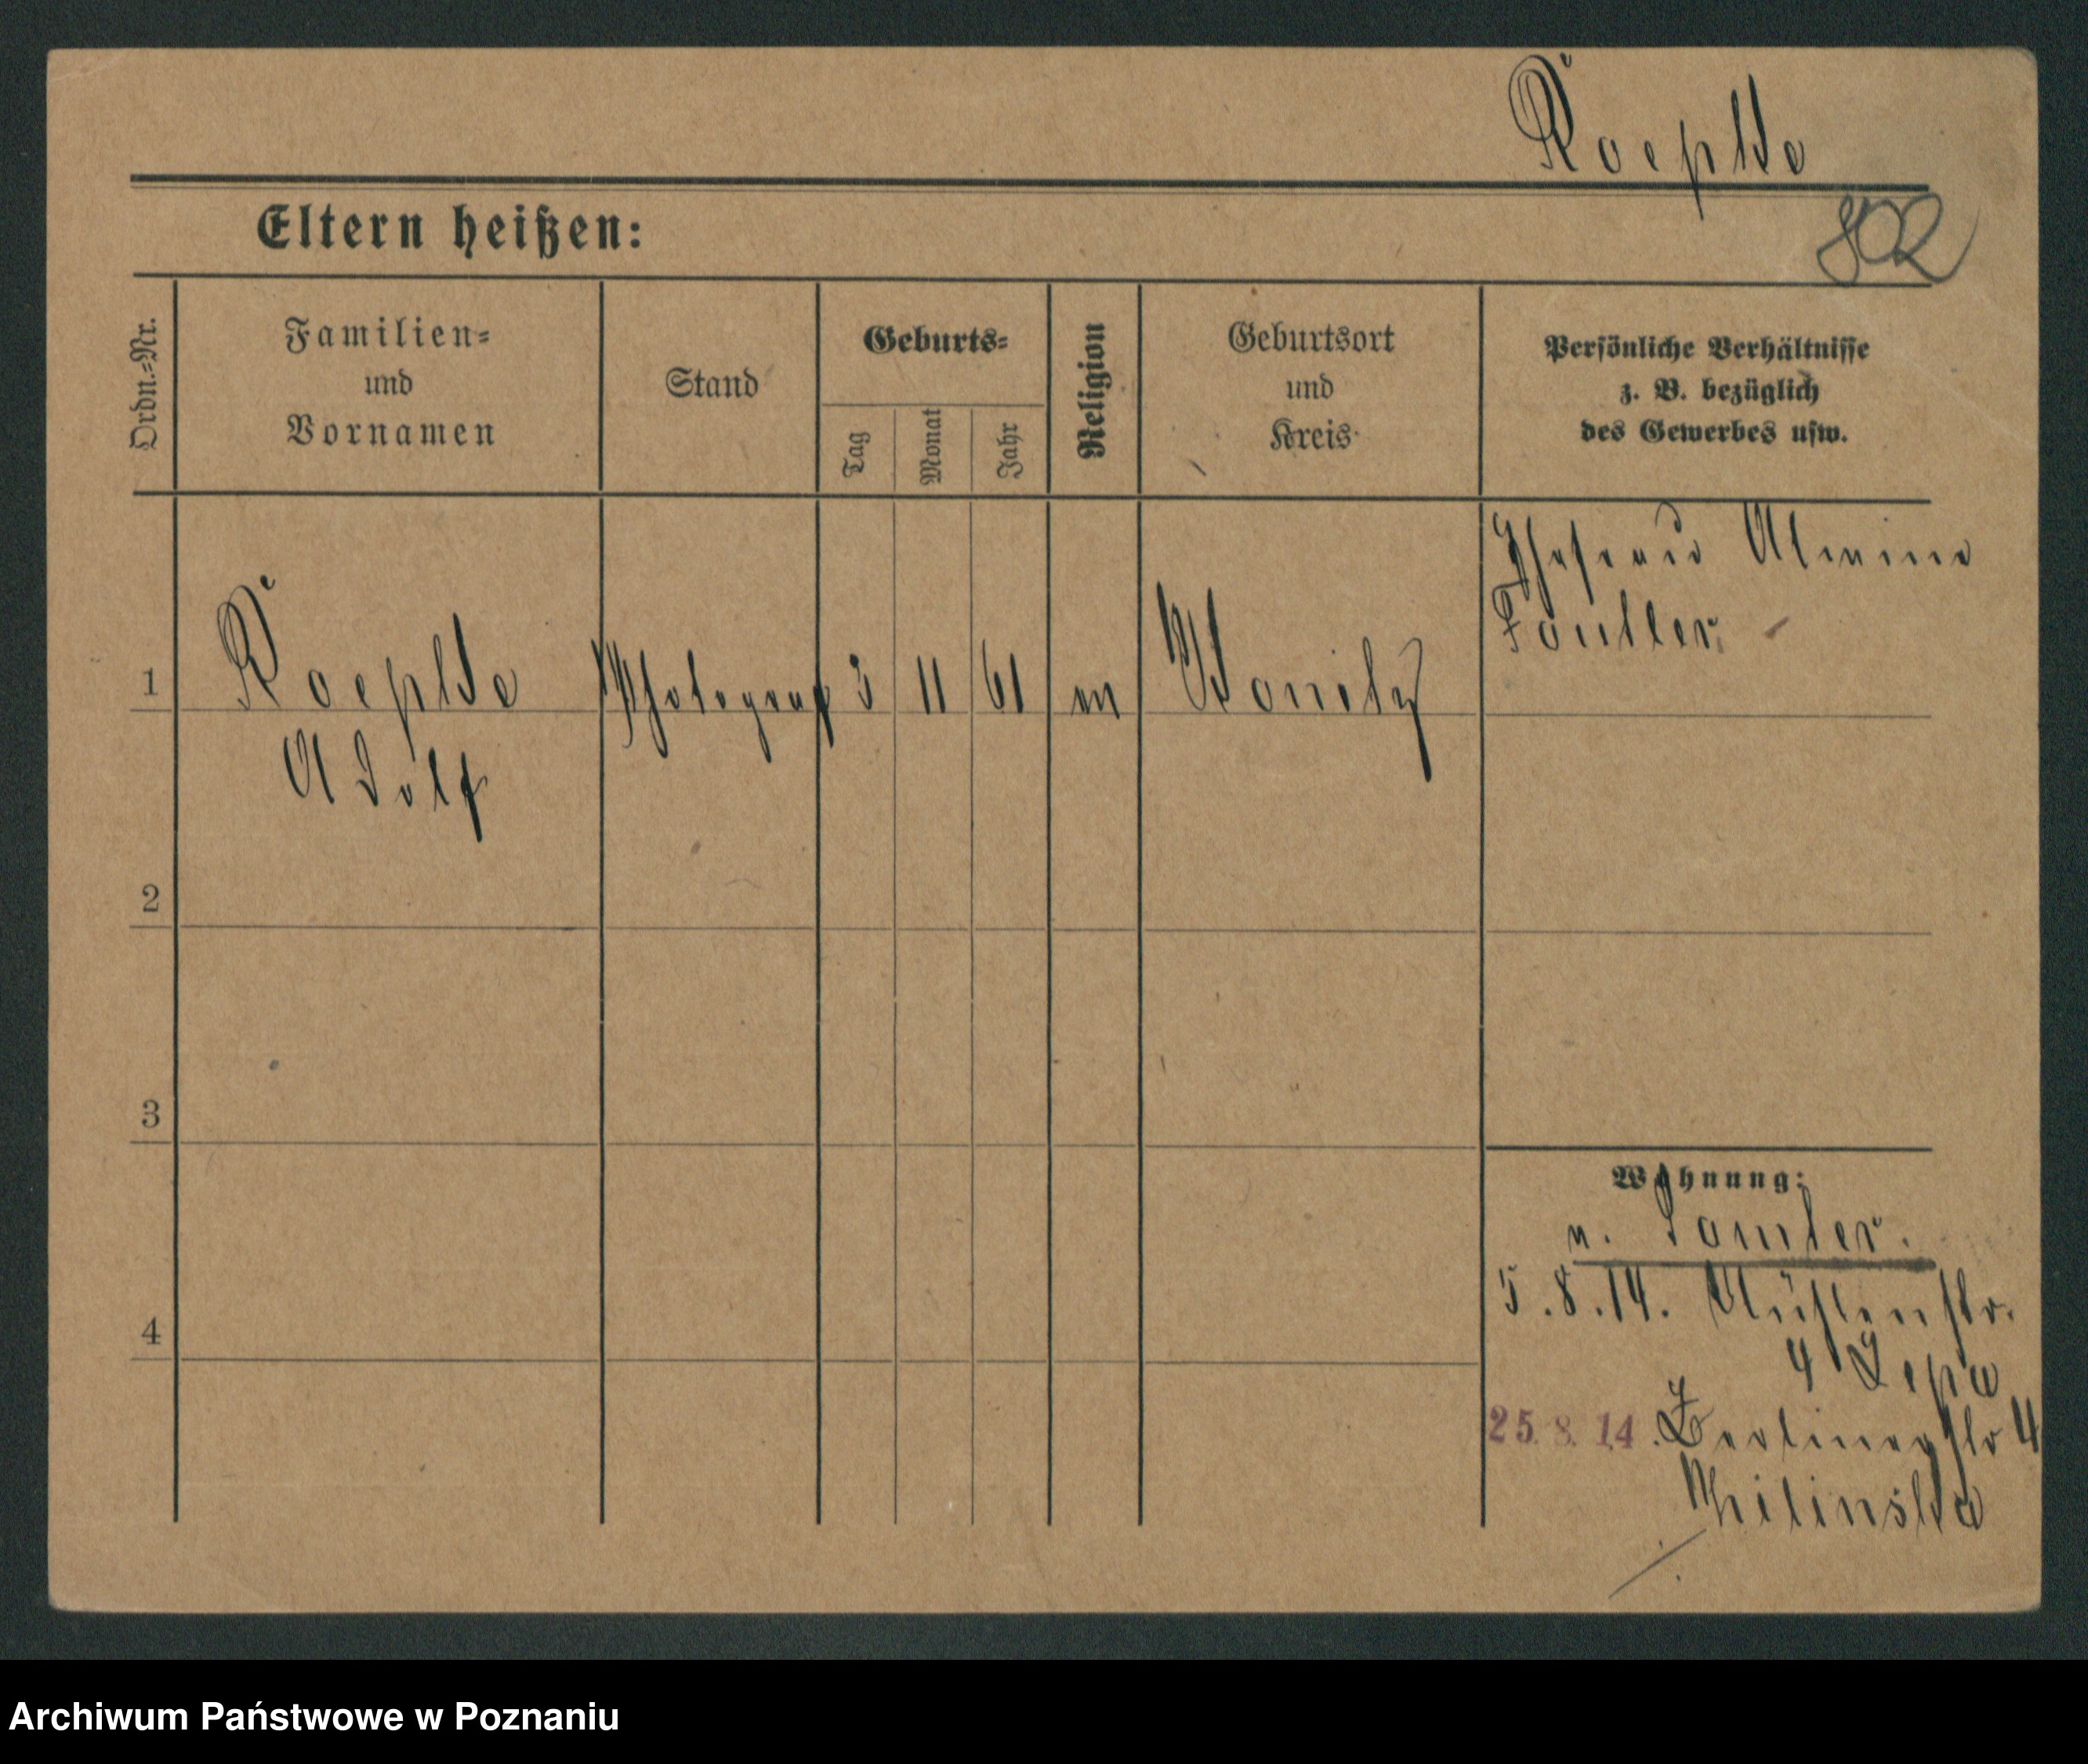 Roepke
802
Eltern heißen:
Ordn.-Nr.
Familien-
und
Vornamen
Stand
Geburts-
Tag
Monat
Jahr
Religion
Geburtsort
und
Kreis
Persönliche Verhältnisse
z. B. bezüglich
des Gewerbes usw.
1
Roepke
Photograf
3
11
61
Adolf
2
3
4
Wohnung:
v. Samter.
5.8.14. Mühlenstr.
4
25.8.14. Berlinerstr 4
Archiwum Państwowe w Poznaniu